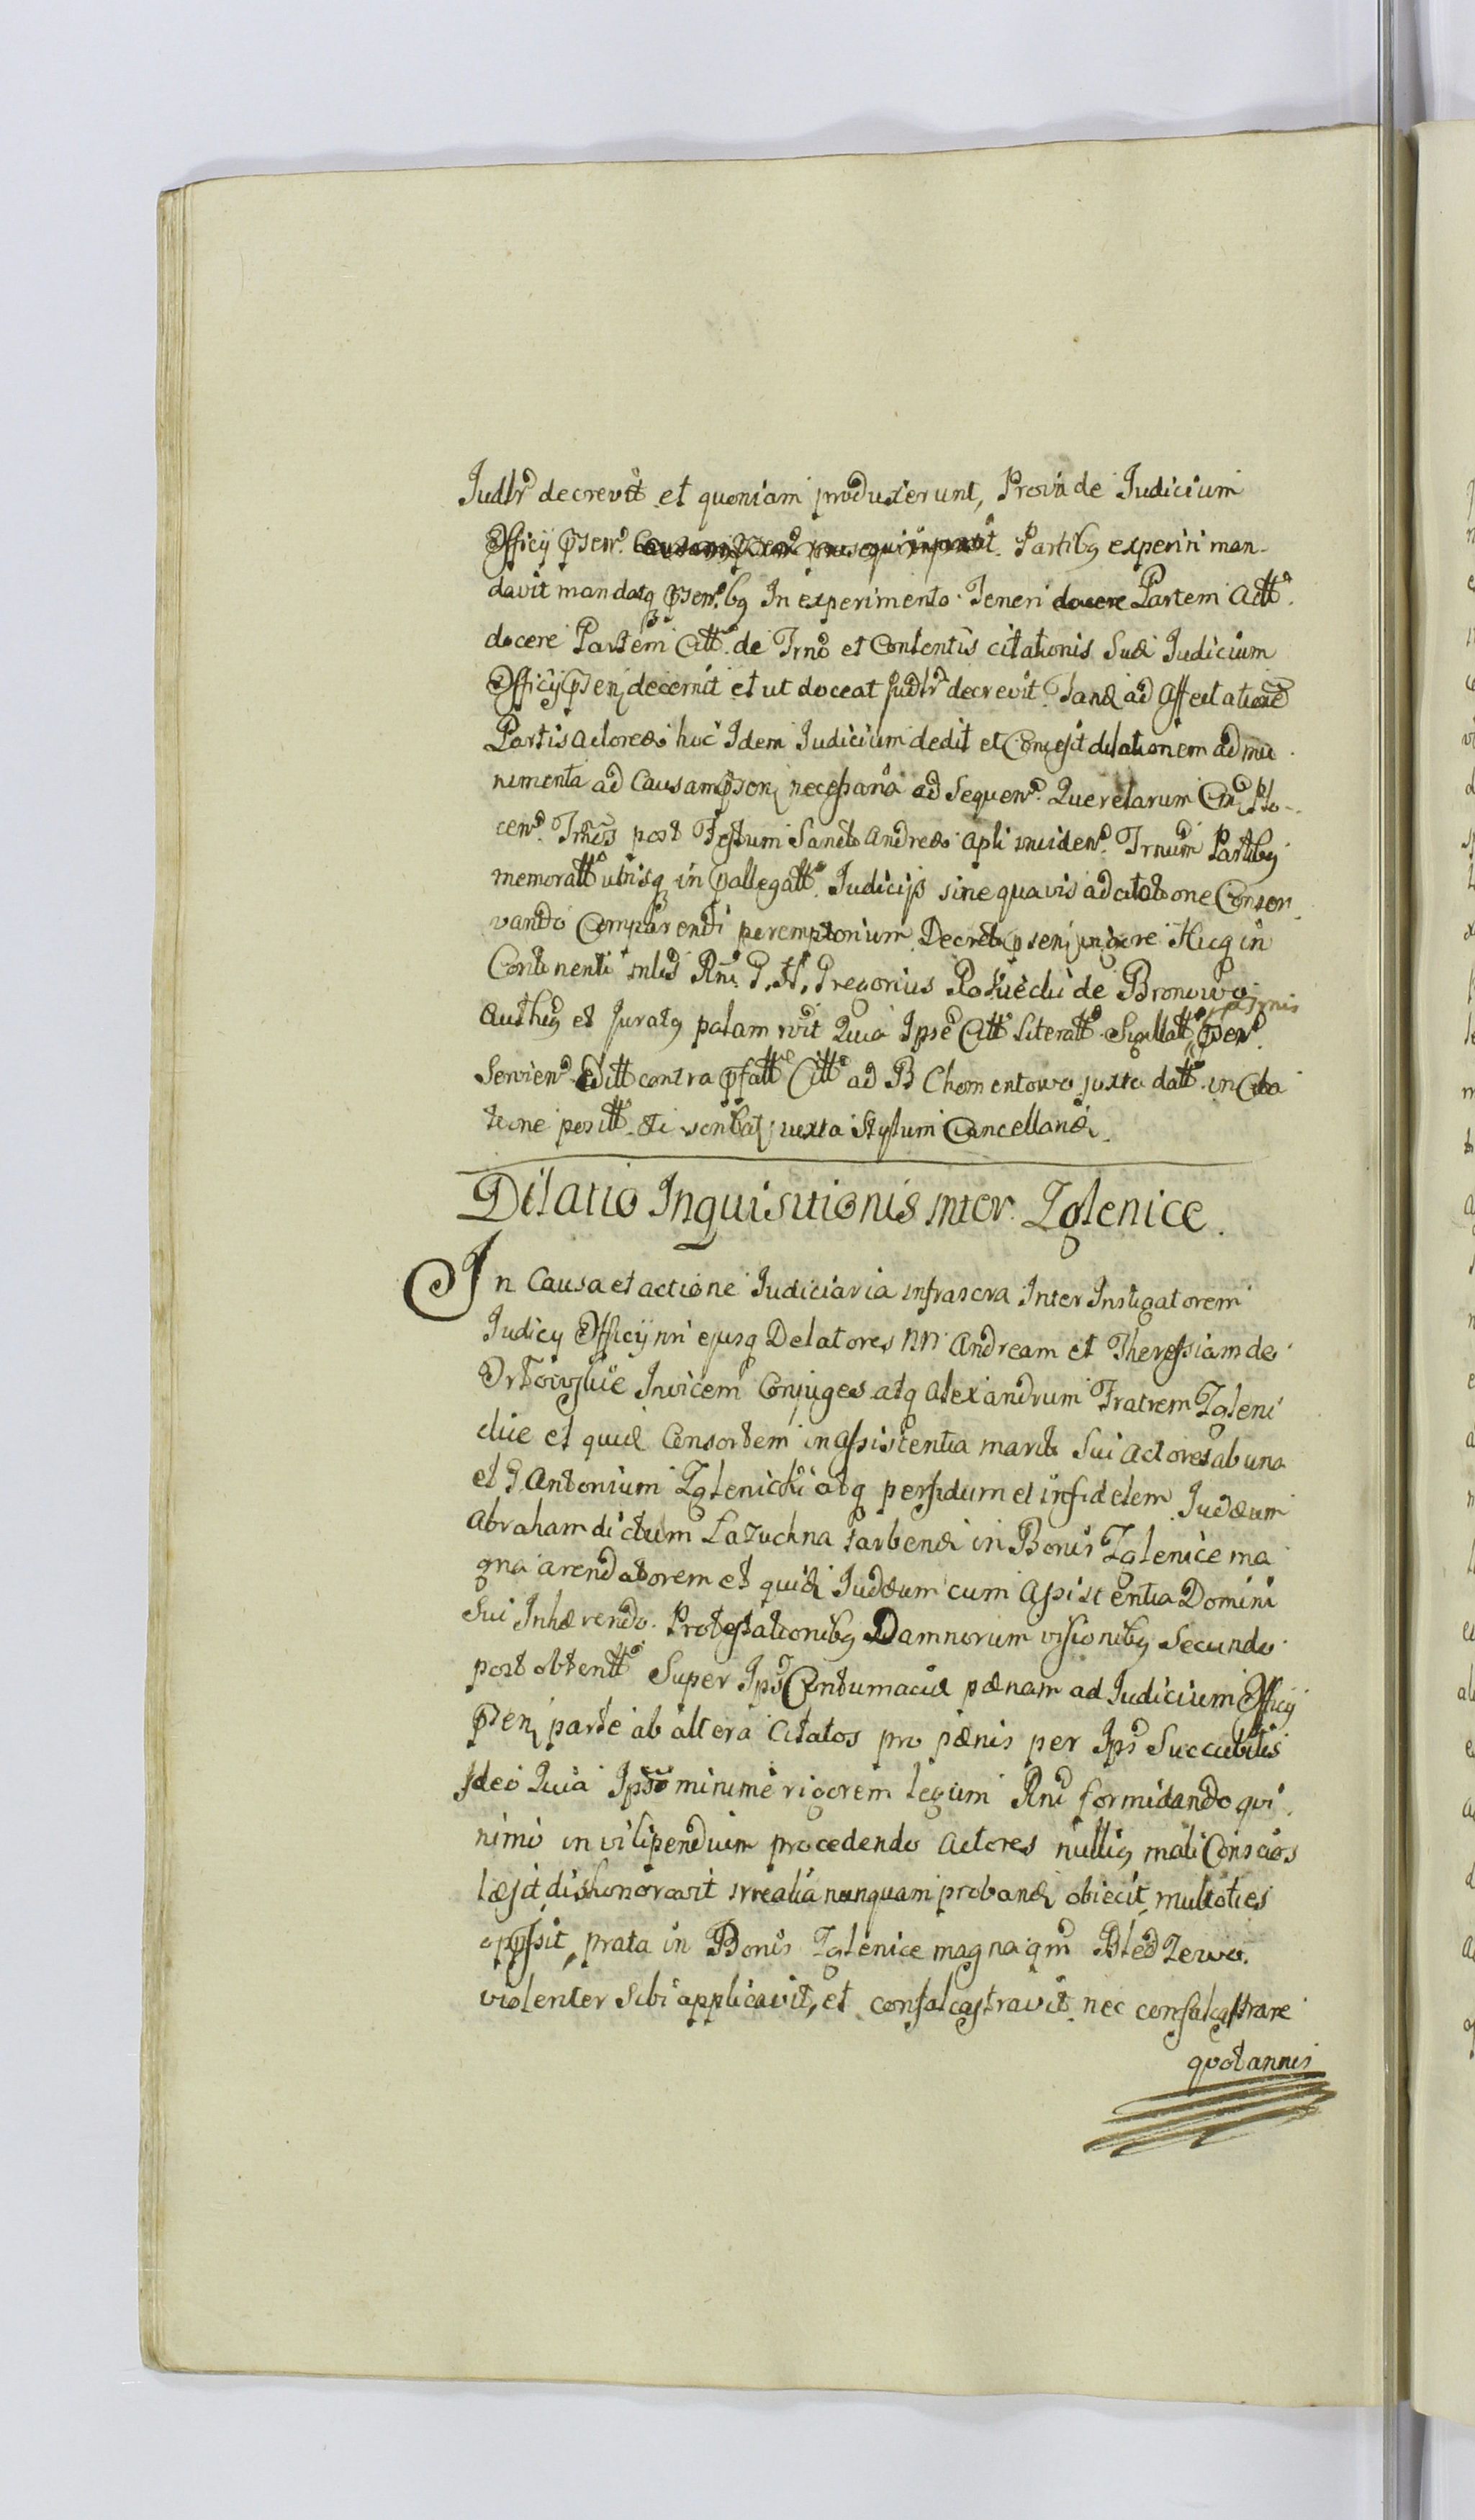 Judlr decrevit et quoniam produxerunt, Proinde Judicium
Officij psen. Partibq experiri man-
davit mandatq psen.bq In experimento Teneri docere Partem Actt.
docere Partem Citt. de Trno et Contentis citationis Suæ Judicium
Officij psen decernit et ut doceat Judlr decrevit. Tandɇ ad Affectatione
Partis Actoreæ hoc Idem Judicium dedit et Concessit dilationem ad mu
nimenta ad Causam psen necessaria ad Sequen. Querelarum Plo-
cen. Trnos post Festum Sancti Andreæ Apli inciden. Trnum Partibq
memoratt utrisq in pallegatt. Judicijs sine quavis adcitatione Conser
vando Comparendi peremptorium Decreti psen vigore Hucq in
Continenti Rni G. N. Gregorius de Bronowo
Authq et Juratq palam rvit Quia Ipse Citt Literatt Sigillatt psen.
Servien. Editt contra pfatt Citt ad B Chomentowo juxta datt in Cita
tione positt. juxta Stylum Cancellariæ.
Dilatio Inquisitionis inter Zglenice.
In Causa et actione Judiciaria infrascra Inter Instigatorem
Judicij Officij nri ejusq Delatores NN Andream et Theressiam de
Invicem Conjuges atq Alexandrum Fratrem Zgleni
ckie et quidɇ Consortem in assistentia mariti Sui Actores ab una
et G Antonium Zglenicki atq perfidum et infidelem Judæum
Abraham dictum Lazuchna Tabernæ in Bonis Zglenice ma
gna arendatorem et quidɇ Judæum cum Assistentia Domini
Sui Inhærendo Protestationibq Damnorum visionibq Secundo
post obtentt Super Ips Contumaciæ pænam ad Judicium Officij
psen parte ab altera Citatos pro pænis per Ips Succubitis
Ideo Quia Ipse minime rigorem legum Rni formidando qui
nimo in vilipendium procedendo Actores nulliq mali Conscios
læsit dishonoravit irrealia nunquam probandɇ obiecit, multoties
, prata in Bonis Zglenice magna qm
violenter Sibi applicavit, et confalcastravit nec confalcastrare
quotannis